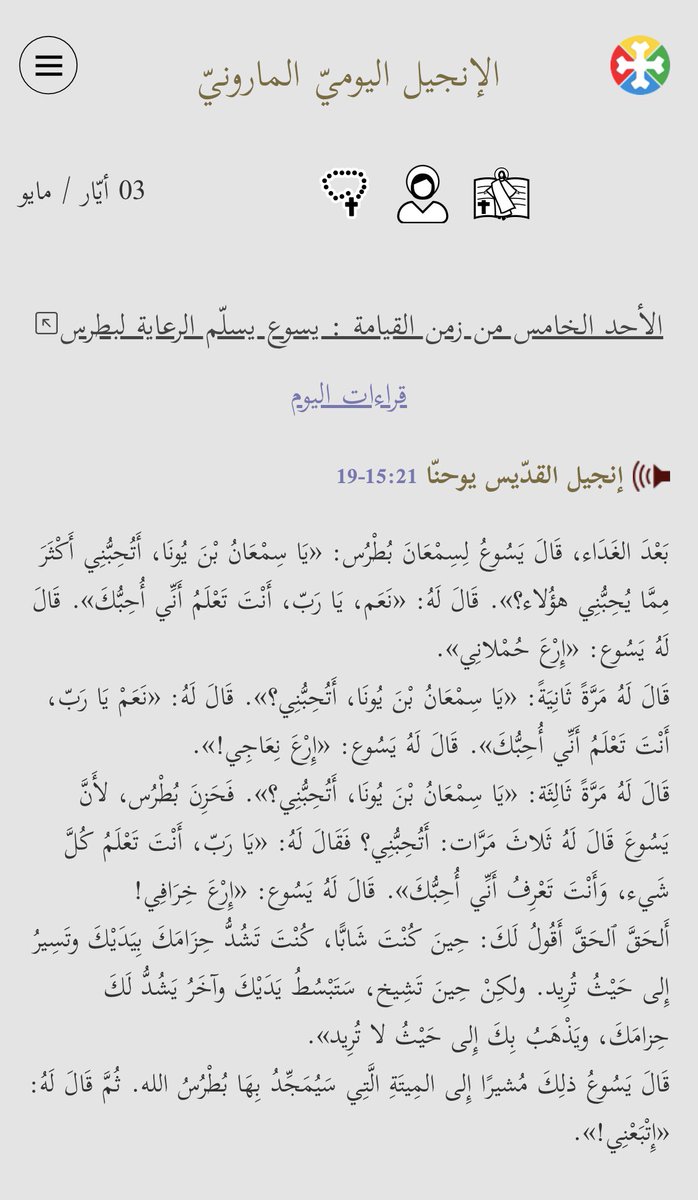 الإنجيل اليوميّ المارونيّ
03 أيّار / مايو
الأحد الخامس من زمن القيامة : يسوع يسلّم الرعاية لبطرس
قراءات اليوم
إنجيل القدّيس يوحنّا 15:21-19
بَعْدَ الغَدَاء، قَالَ يَسُوعُ لِسِمْعَانَ بُطْرُس: «يَا سِمْعَانُ بْنَ يُونَا، أَتُحِبُّنِي أَكْثَرَ
مِمَّا يُحِبُّنِي هؤُلاء؟». قَالَ لَهُ: «نَعَم، يَا رَبّ، أَنْتَ تَعْلَمُ أَنِّي أُحِبُّكَ». قَالَ
لَهُ يَسُوع: «إِرْعَ حُمْلانِي».
قَالَ لَهُ مَرَّةً ثَانِيَةً: «يَا سِمْعَانُ بْنَ يُونَا، أَتُحِبُّنِي؟». قَالَ لَهُ: «نَعَمْ يَا رَبّ،
أَنْتَ تَعْلَمُ أَنِّي أُحِبُّكَ». قَالَ لَهُ يَسُوع: «إِرْعَ نِعَاجِي!».
قَالَ لَهُ مَرَّةً ثَالِثَة: «يَا سِمْعَانُ بْنَ يُونَا، أَتُحِبُّنِي؟». فَحَزِنَ بُطْرُس، لأَنَّ
يَسُوعَ قَالَ لَهُ ثَلاثَ مَرَّات: أَتُحِبُّنِي؟ فَقَالَ لَهُ: «يَا رَبّ، أَنْتَ تَعْلَمُ كُلَّ
شَيء، وَأَنْتَ تَعْرِفُ أَنِّي أُحِبُّكَ». قَالَ لَهُ يَسُوع: «إِرْعَ خِرَافِي!
أَلحَقَّ ٱلحَقَّ أَقُولُ لَكَ: حِينَ كُنْتَ شَابًّا، كُنْتَ تَشُدُّ حِزَامَكَ بِيَدَيْكَ وتَسِيرُ
إِلى حَيْثُ تُرِيد. ولكِنْ حِينَ تَشِيخ، سَتَبْسُطُ يَدَيْكَ وآخَرُ يَشُدُّ لَكَ
حِزامَكَ، ويَذْهَبُ بِكَ إِلى حَيْثُ لا تُرِيد».
قَالَ يَسُوعُ ذلِكَ مُشيرًا إِلى المِيتَةِ الَّتِي سَيُمَجِّدُ بِهَا بُطْرُسُ الله. ثُمَّ قَالَ لَهُ:
«إِتْبَعْنِي!».